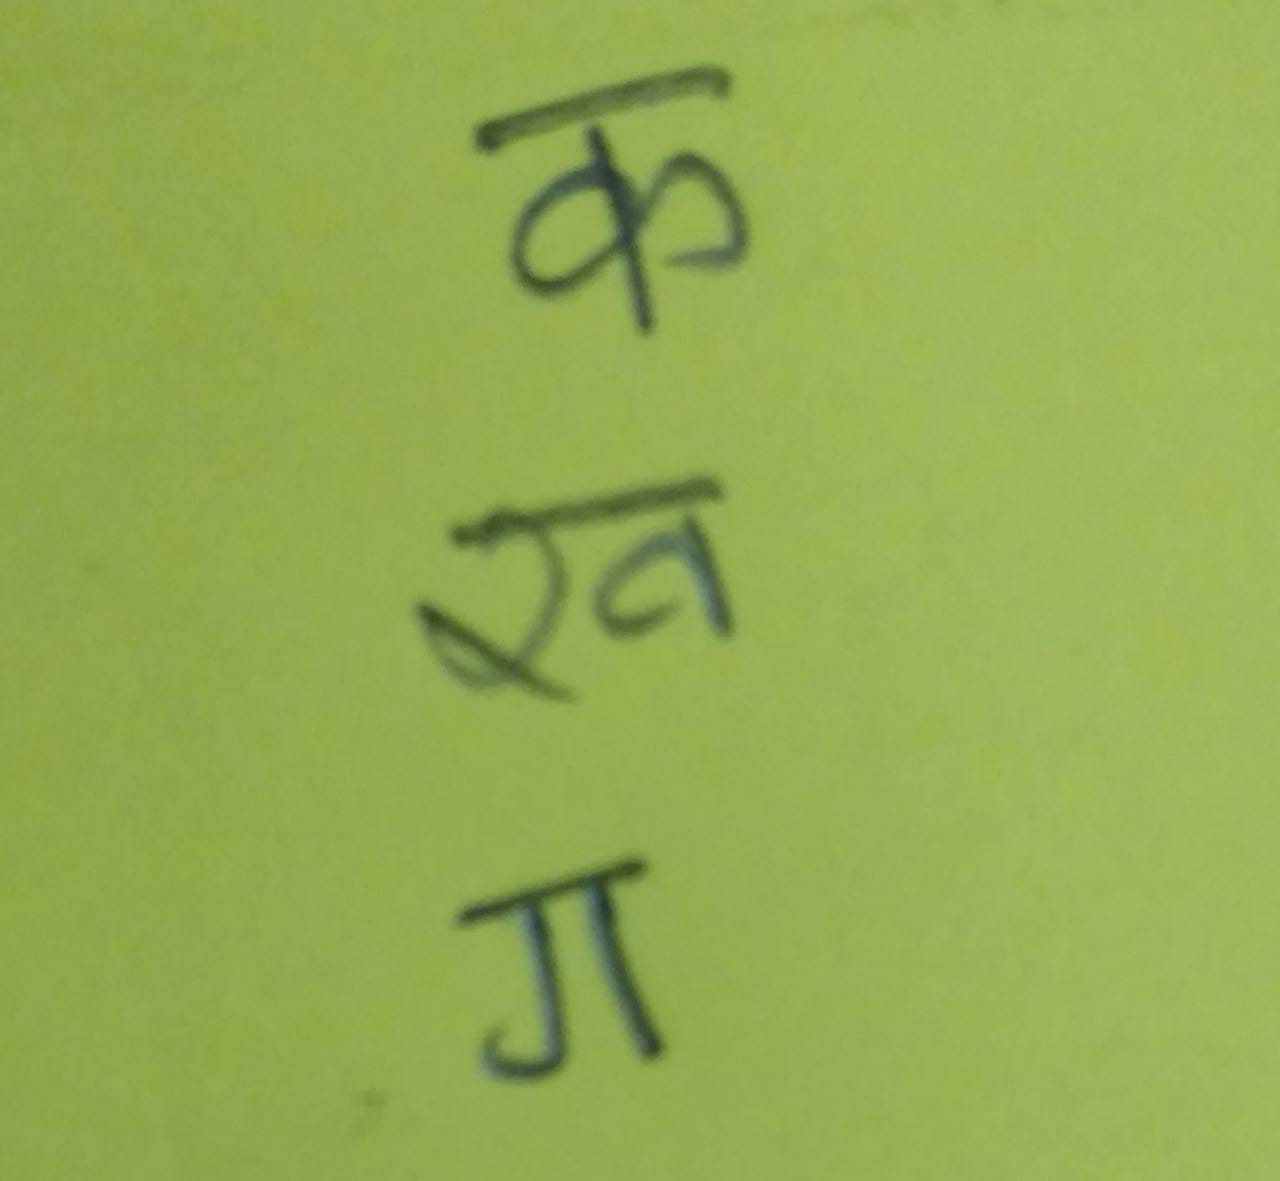 क
ख
ग